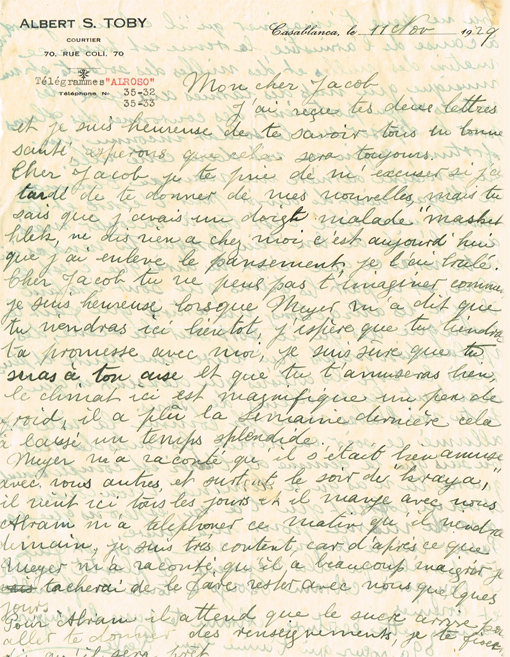 ALBERT S. TOBY
COURTIER
70, RUE COLI, 70
Casablanca, le 11 Nov 1929
Télégrammes "ALROSO"
Téléphone No 35-32
35-33
Mon cher Jacob
J'ai reçue tes deux lettres
et je suis heureuse de te savoir tous en bonne
santé esperons que cela sera toujours.
Cher Jacob je te prie de m'excuser si j'ai
tardé de te donner de mes nouvelles, mais tu
sais que j'avais un doigt malade
ne dis rien a chez moi, c'est aujourd'hui
que j'ai enlevé le pansement, je l'ai
Cher Jacob tu ne peux pas t'imaginer comme
je suis heureuse lorsque Meyer m'a dit que
tu viendras ici bientot, j'espère que tu tiendras
ta promesse avec moi, je suis sure que tu
seras à ton aise et que tu t'amuseras bien,
le climat ici est magnifique un peu de
froid, il a plû la semaine dernière cela
a laissi un temps splendide.
Meyer m'a raconté qu'il s'était bien amusé
avec vous autres, et surtout le soir de
il vient ici tous les jours et il mange avec nous
Abram m'a telephoner ce matin qu'il viendra
demain, je suis très content, car d'après ce que
Meyer m'a raconté, qu'il a beaucoup maigrer je
tacherai de le faire rester avec nous quelques
jours
Pour Abram il attend que le sucre arrive pour
aller te donner des renseignements, je te
qu'il sera prêt